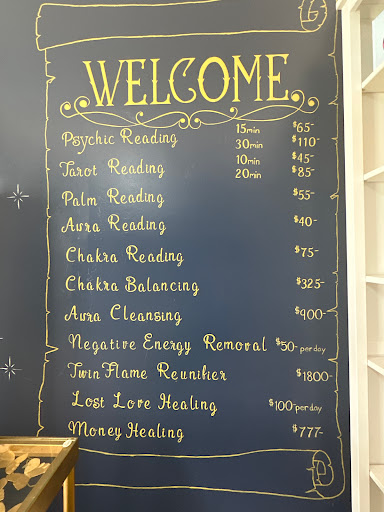 WELCOME
Psychic Reading 15min $65-
30min $110-
Tarot Reading 10min $45-
20min $85-
Palm Reading $55-
Aura Reading $40-
Chakra Reading $75-
Chakra Balancing $325-
Aura Cleansing $900-
Negative Energy Removal $50-per day
Twin Flame Reunifier $1800-
Lost Love Healing $100-per day
Money Healing $777-